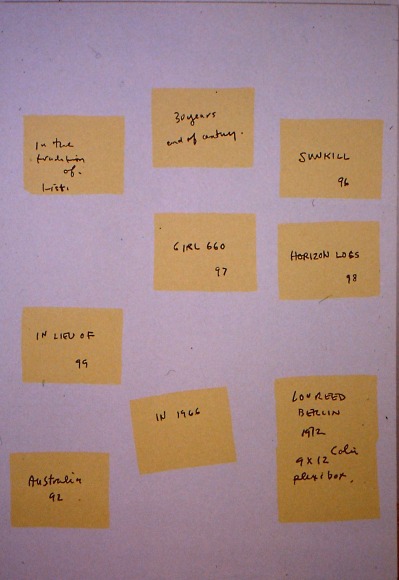 In the
tradition
of.
Lists
30 years
end of century.
SUNKILL
96
GIRL 660
97
HORIZON LOGS
98
IN LIEU OF
99
IN 1966
LOU REED
BERLIN
1972
9 X 12 Color
plexi box.
Australia
92